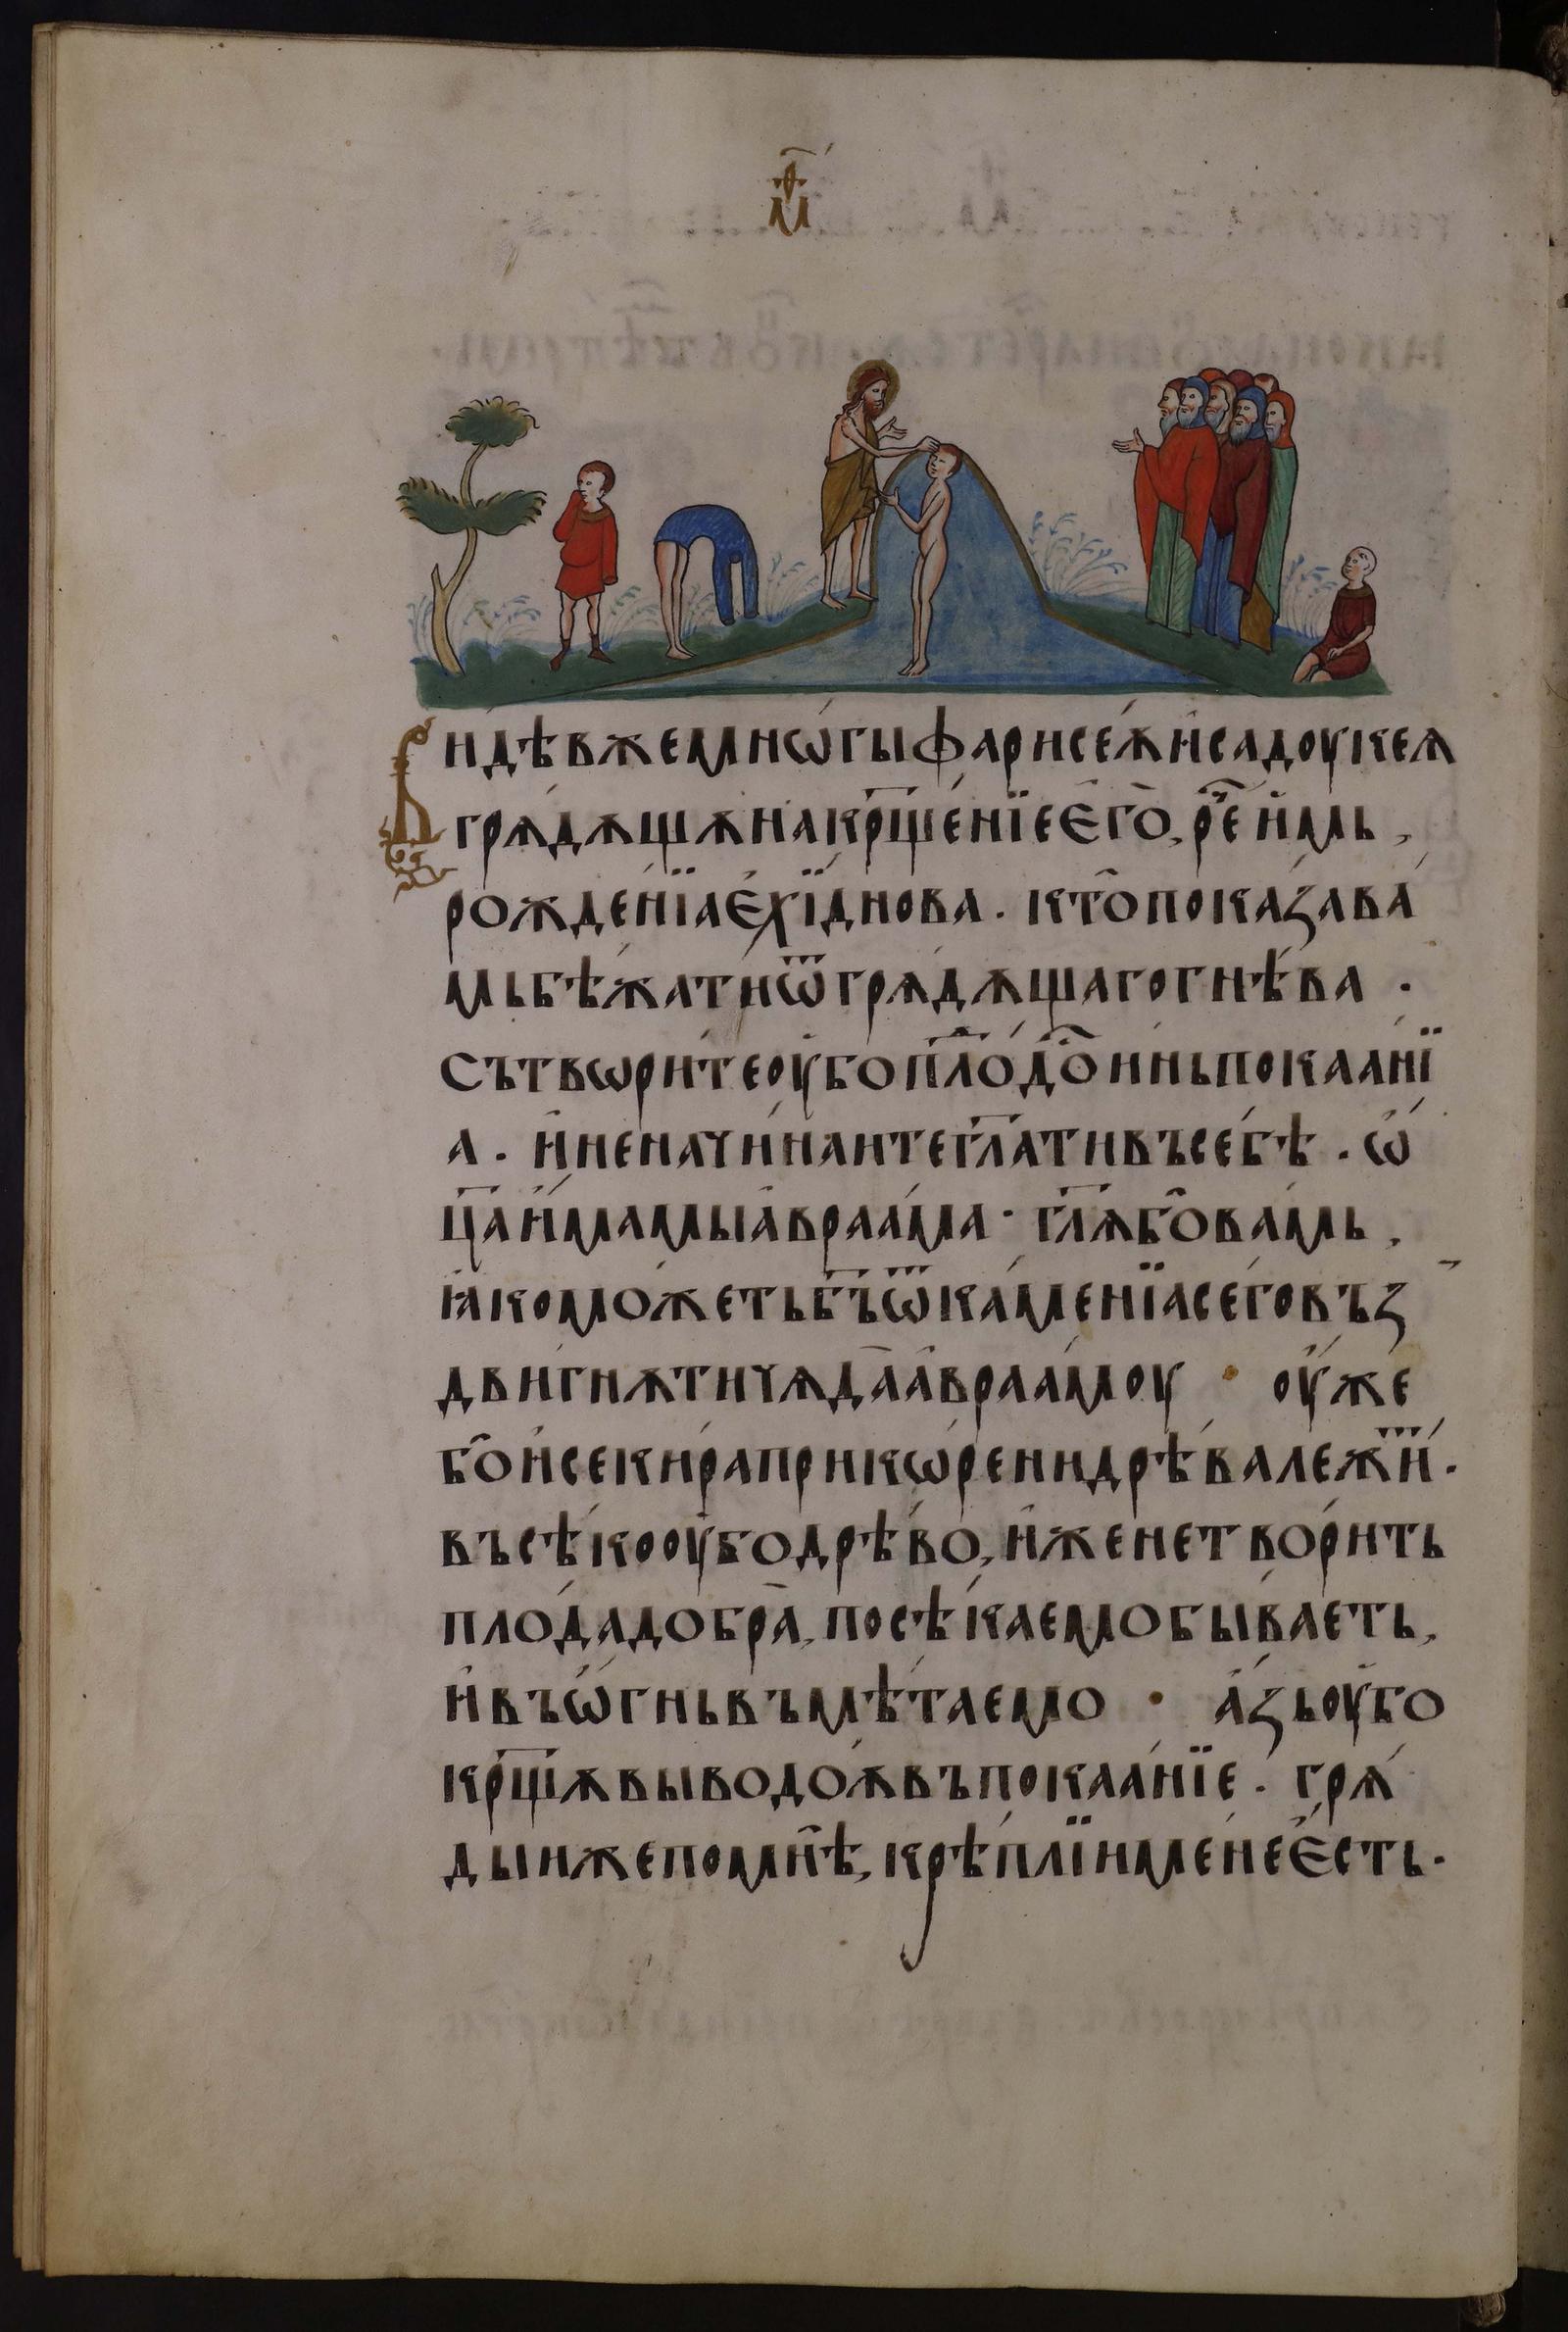 Видѣвжемнѡ́гыфарисе́ѫи҆садоукеѧ
грѧ́дѫщѫнакр҃ще́нїеЄ҆го̀, рч҃е и҆мь,
рожде́нїаЄ҆хї́днова. кто̑показава́
мьбѣ́жатиѿгрѧ́дѫщагогнѣ́ва.
Сътвѡри́теоу҆боплѡ́д҄о҄иньпокаанї
а. и҆неначи́наитегл҃а́тивъсе́бѣ. ѡ҆́
ца҃и҆́мамыа҆враа́ма· гл҃ѫбо̑ва́мь,
ꙗ҆комо́жетьбъ҃ѿка́менїасегѡвъꙁ
дви́гнѫтичѧ́да̀а҆враа́моу · оу҆же
бо̑и҆секи́раприкѡ́рениидрѣ́валежи́т.
въсѣ́кооу҆бодрѣ́во, и҆́женетво́рить
плода̀добра̀, посѣ́каемобыва́еть,
и҆въѡ҆́гньвъмѣ́таемо · а҆́ꙁьоу҆бо
кр҃щѫ́выводо́ѫвъпокаа́нїе. грѧ́
дыижепомнѣ̑, крѣ́плїимене́Є҆сть.